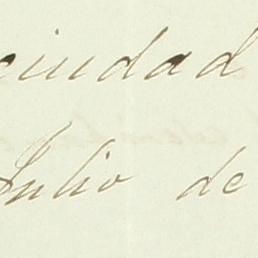 ciudad
Julio de